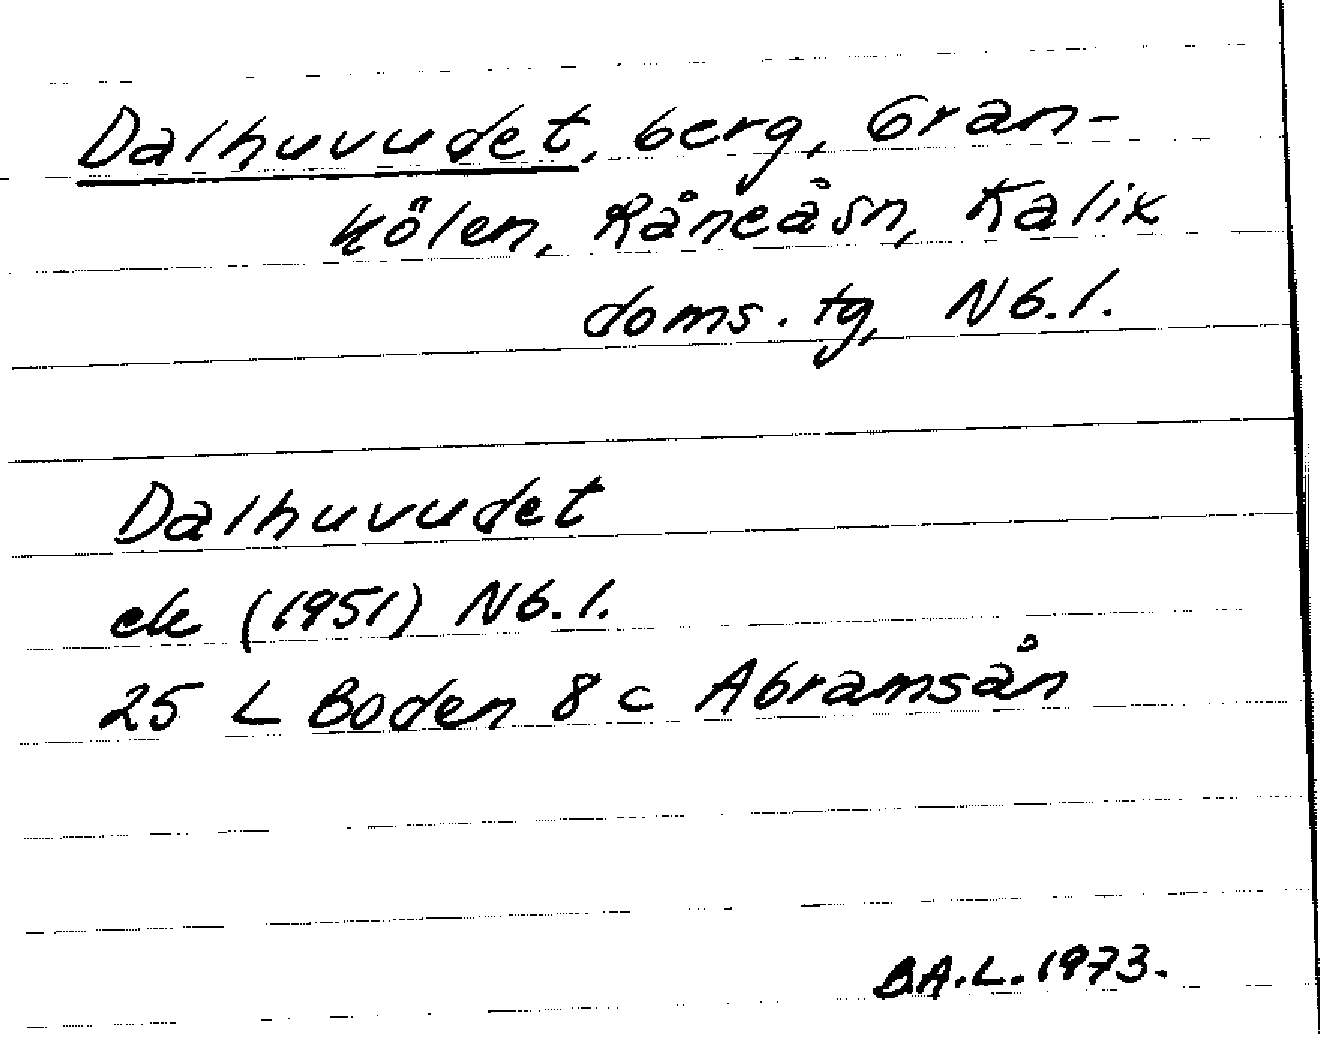 Dalhuvudet, berg, Gran-
kölen, Råneå sn, Kalix
doms. tg, Nb. l.
Dalhuvudet
ek (1951) Nb. l.
25 L Boden 8 c Abramsån
B.A.L. 1973.